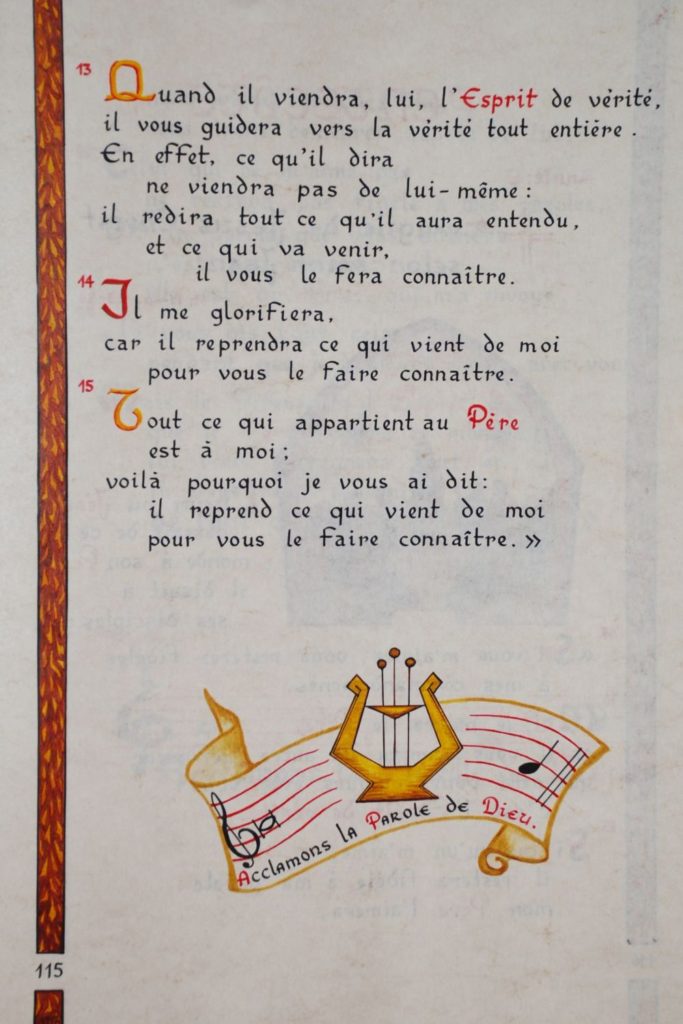 13
Quand il viendra, lui, l'Esprit de vérité,
il vous guidera vers la vérité tout entiére.
En effet, ce qu'il dira
ne viendra pas de lui-même :
il redira tout ce qu'il aura entendu,
et ce qui va venir,
il vous le fera connaître.
14
Il me glorifiera,
car il reprendra ce qui vient de moi
pour vous le faire connaître.
15
Tout ce qui appartient au Père
est à moi ;
voilà pourquoi je vous ai dit :
il reprend ce qui vient de moi
pour vous le faire connaître. »
Acclamons la Parole de Dieu.
115